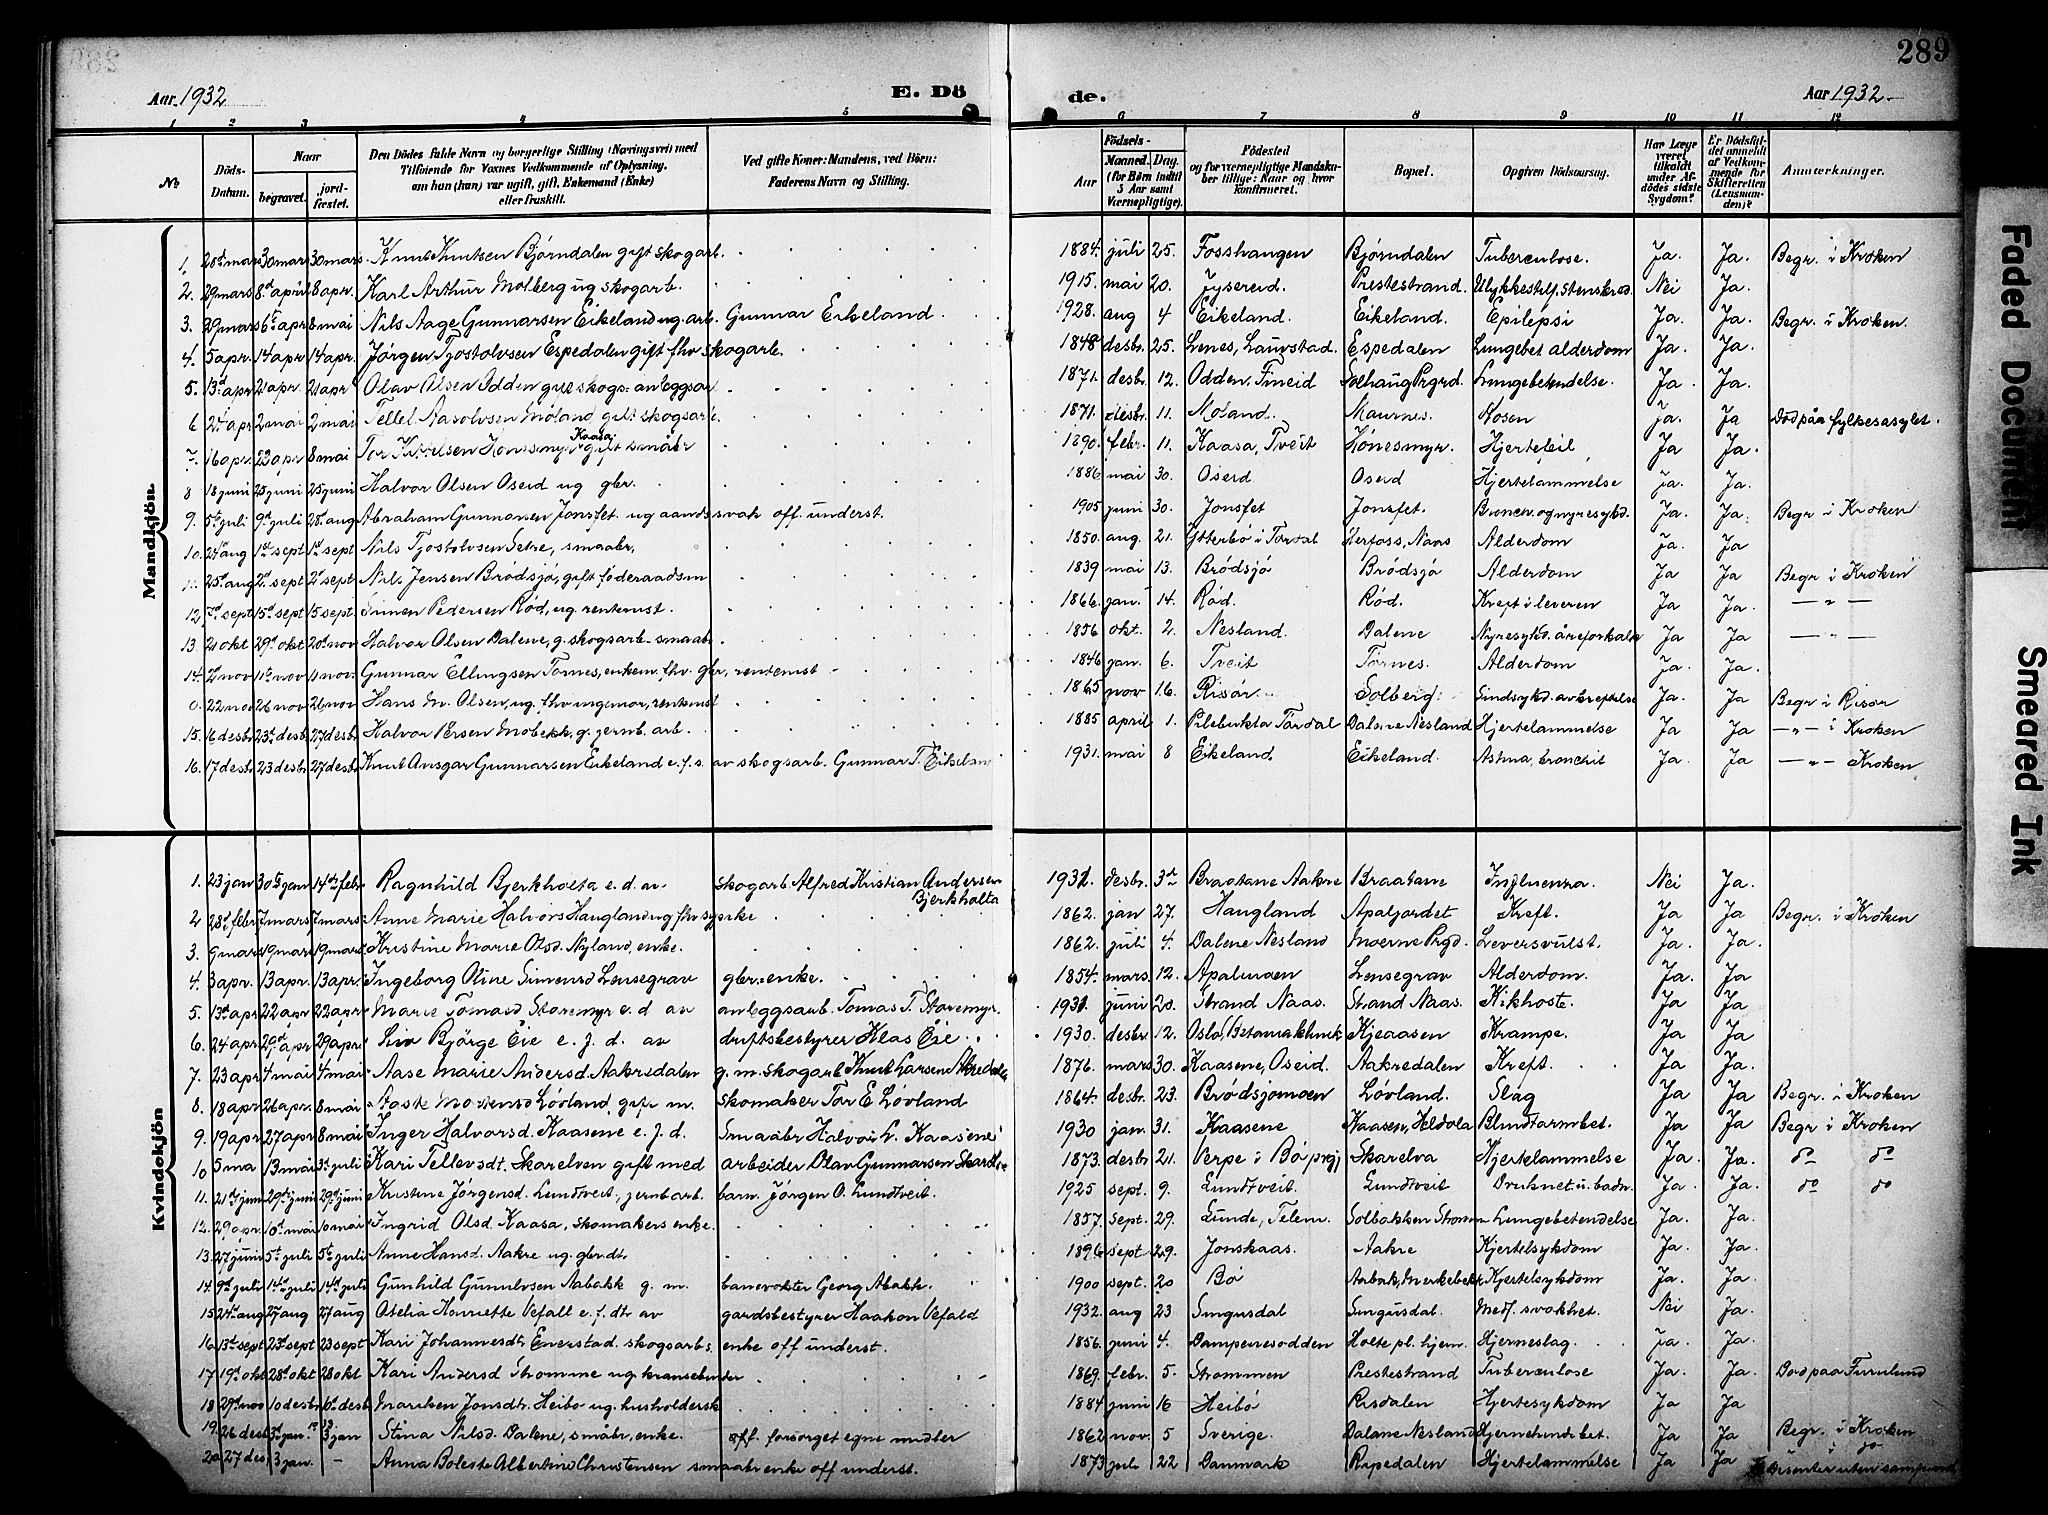 289
Aar 1932
E. Dö de.
Aar 1932.
1 2 3 4 5 6 7 8 9 10 11 12
No
Döds-Datum.
Naar begravet. jordfæstet.
Den Dödes fulde Navn og borgerlige Stilling (Næringsvei) med Tilföiende for Voxnes Vedkommende af Oplysning, om han (hun) var ugift, gift, Enkemand (Enke) eller fraskilt.
Ved gifte Koner: Mandens, ved Börn: Faderens Navn og Stilling.
Födsels- Aar Maaned. Dag. (for Börn indtil 5 Aar samt Værnepligtige).
Födested og for værnepligtige Mandskaber tillige: Naar og hvor konfirmeret.
Bopæl.
Opgiven Dödsaarsag.
Har Læge været tilkaldt under Afdödes sidste Sygdom?
Er Dödsfaldet anmeldt af Vedkommende for Skifteretten (Lensmanden)?
Anmærkninger.
Mandkjön.
1. 28de mars 30 mars 30 mars. Knut Knutsen Bjørndalen gift skogarb. 1884. juli 25. Fosshaugen Bjørndalen Tuberculose. Ja. Ja. Begr. i Kroken
2. 29 mars 8de april 8 apr. Karl Arthur Molberg ug skogarb. 1915. mai 20. Prestestrand. Ulykkestilf. Nei Ja.
3. 29 mars 6te apr 8 mai Nils Aage Gunnarsen Eikeland ug. arb. Gunnar Eikeland. 1928. aug 4 Eikeland. Eikeland. Epilepsi Ja. Ja. Begr. i Kroken.
4. 5 apr. 14 apr 14 apr. Jørgen Tjostolvsen Espedalen gift fhv skogarb. 1848 desbr. 25. Espedalen Lungebet alderdom Ja. Ja.
5. 13de apr 21 apr. 21 apr Olav Olsen Odden gift skogs- anleggsar 1871. desbr. 12. Odden, Fineid Solhaug Prgrd. Lungebetendelse. Ja. Ja.
6 2 mai 2 mai Tellef Aasolvsen Moland gift skogsarb. 1871. desbr. 11. Moland. Maurnes. Rosen Ja. Ja Död paa fylkesasylet.
7. 16 apr. 22 apr 8 mai Kaasa gift småbr 1890. febr. 11. Kaasa, Tveit Hönesmyr. Hjertefeil Ja Ja.
8 18 juni 25 juni 25 juni Halvor Olsen Oseid ug gbr. 1886 mai 30. Oseid Oseid Hjertelammelse Ja. Ja.
9. 5te juli 9de juli 28de aug Abraham Gunnarsen Jonsfet. ug aandssvak off. underst. 1905 juni 30. Jonsfet Jonsfet. Ja. Ja. Begr i Kroken
10. aug 1ste sept 1st sept. Nils Tjostolvsen Setre, smaabr. 1850. aug. 21. Ytterbö i Tördal Herfoss, Naas Alderdom Ja. Ja
11. 25de aug 2de sept 2de sept. Nils Jensen Brödsjö, gift föderaadsm 1839 mai 13. Brödsjö Brödsjö Alderdom Ja Ja Begr i Kroken
12 7de sept 15de sept 15 sept. Simen Pedersen Röd, ug. rentenist. 1866. jan. 14. Röd. Röd. Kreft i leveren Ja Ja. — " —
13. 21 okt 29de okt 20de nov Halvor Olsen Dalene, g. skogsarb - smaabr 1856 okt. 2. Nesland. Dalene Nyresykd. åreforkalk Ja Ja — " —
14. 2de nov 11te nov 11 nov. Gunnar Ellingsen Tornes, enkem. fhv. gbr, rentenist 1846 jan. 6. Tveit Tornes. Alderdom Ja. Ja.
0. 22 nov 26 nov 26 nov Hans M. Olsen, ug. fhv ingeniør, rentenist 1865 nov 16. Risør Solberg Sindsykd. avkreftelse Ja. Ja Begr i Risør
15. 16 desbr 23de desb 27 desb. Halvor Persen Mobekk, g. jernb. arb. 1885 april 1. Pilebukta Tördal Dalene Nesland Hjertelammelse Ja Ja — " — i Kroken
16. 17 desbr 23 desbr 27 desbr. Knut Ansgar Gunnarsen Eikeland e. f. s. av skogsarb. Gunnar T. Eikeland 1931. mai 8 Eikeland. Eikeland. Astma, bronchit Ja. Ja — " — Kroken
Kvindekjön
1. 23 jan 30te jan 14de febr Ragnhild Bjerkholta e. d. av skogarb Alfred Kristian Andersen Bjerkholta 1931. desbr. 3de Braatane Aakre Braatane Influenza. Nei Ja.
2 28de febr 7 mars 7 mars Anne Marie Halvors Haugland ug fhv syerske 1862. jan 27. Haugland Apaljordet Kreft. Ja Ja Begr. i Kroken
3. 9 mars 19 mars 19 mars Kristine Marie Olsd. Nyland, enke. 1862. juli 4. Dalene Nesland Moerne Prgd. Leversvulst. Ja Ja.
4. 3 apr. 13 apr. 13 apr. Ingeborg Oline Simensd Lensegrav gbr. enke. 1854. mars. 12. Apalmoen Lensegrav Alderdom. Ja. Ja
5. 13de apr 22 apr 22 apr Marie Tomasd Staremyr e. d av anleggsarb Tomas T. Staremyr. 1931 juni 20. Strand Naas. Strand Naas. Kikhoste. Ja Ja
6. 24 apr 29de apr 29 apr. Liv Björge Eie e. f. d. av driftsbestyrer Klas Eie. 1930. desbr. 12. Kjeaasen Krampe. Ja Ja
7. 23 apr 4 mai 4 mai Aase Marie Andersd. Aakredalen g. m. skogarb Knut Larsen Akredalen 1876. mars 30. Kaasene, Oseid. Aakredalen Kreft. Ja Ja
8. 18 apr 26 apr. 8 mai Aaste Mortensd Lövland, gift m. skomaker Tor E Lövland 1864. desbr. 23. Brödsjömoen Lövland. Slag Ja Ja Begr. i Kroken
9. 19 apr 27 apr 8 mai Inger Halvorsd. Kaasene e. f. d. Smaabr Halvor L. Kaasene 1930 jan. 31. Kaasene Kaasen, Heldola Blindtarmbet. Ja Ja Begr i Kroken
10 5 mai 13 mai 3de juli Kari Tellevsdt. Skarelven gift med arbeider Olav Gunnarsen Skarelven 1873. desbr 21. Verpe i Bö prgj Skarelva Hjertelammelse Ja. Ja. do do
11. 21de juni 29de juni 29de juni Kristine Jörgensd. Lundtveit, jernb arb. barn. Jörgen O. Lundtveit. 1925 sept. 9. Lundtveit. Lundtveit Druknet u. badn. Ja. Ja. do do
12. 29 apr. 10de mai 10 mai Ingrid Olsd Kaasa, skomakers enke. 1857. sept. 29. Lunde, Telem. Solbakken Strömm Lungebetendelse Ja. Ja.
13. 27 juni 5te juli 5te juli Anne Hansd. Aakre ug. gbr. dtr 1896 sept 29. Jonskaas. Aakre Hjertesykdom Ja. Ja.
14. 9de juli 14de juli 14de juli Gunhild Gunulvsen Aabakk g. m. banevokter Georg Abakk. 1900 sept. 20 Bö Aabakk, Merkebekk Hjertesykdom Ja. Ja.
15 24de aug 27 aug 27 aug Otelia Henriette Vefall e. f. dtr av gardsbestyrer Haakon Vefald 1932 aug 23 Singusdal Singusdal. Medf. svakhet. Nei Ja.
16 13de sept 23de sept 23 sept Kari Johannesdt. Enerstad. skogsarbs. enke off underst. 1856. juni 4. Dampenesodden Holte pl. hjem. Hjerneslag. Ja. Ja.
17 19de okt 28de okt 28 okt Kari Andersd Strömme ug. kransebinder 1869. febr. 5. Strömmen Prestestrand Tuberculose Ja. Ja. Död paa Furulund
18 29de nov 10 desbr 10de desb. Mariken Jonsdt. Heibö ug. husholdersk 1884 juni 16 Heibö Risdalen Hjertesykdom Ja Ja.
19. 26 desb. 3de jan. 3 jan Stina Nilsd. Dalene, småbr. enke. off. forsorget egne midler 1862 nov. 5 Sverige. Dalane Nesland Hjernehindebet. Ja Ja Begr. i Kroken
20 27 des 3 jan. - Anna Boleste Albertine Christensen smaabr enke off underst. 1873 juli 22 Danmark Ripedalen Hjertelammelse Ja Ja i do
Disenter uten samfund
Faded Document
Smeared Ink